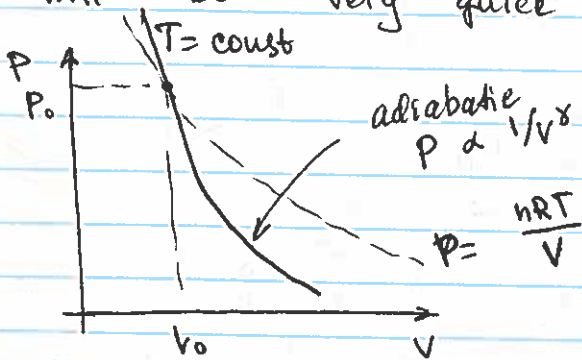 very quick
T = const
P
P₀
adiabatic
P ∝ 1/V^γ
P = nRT/V
V₀
V